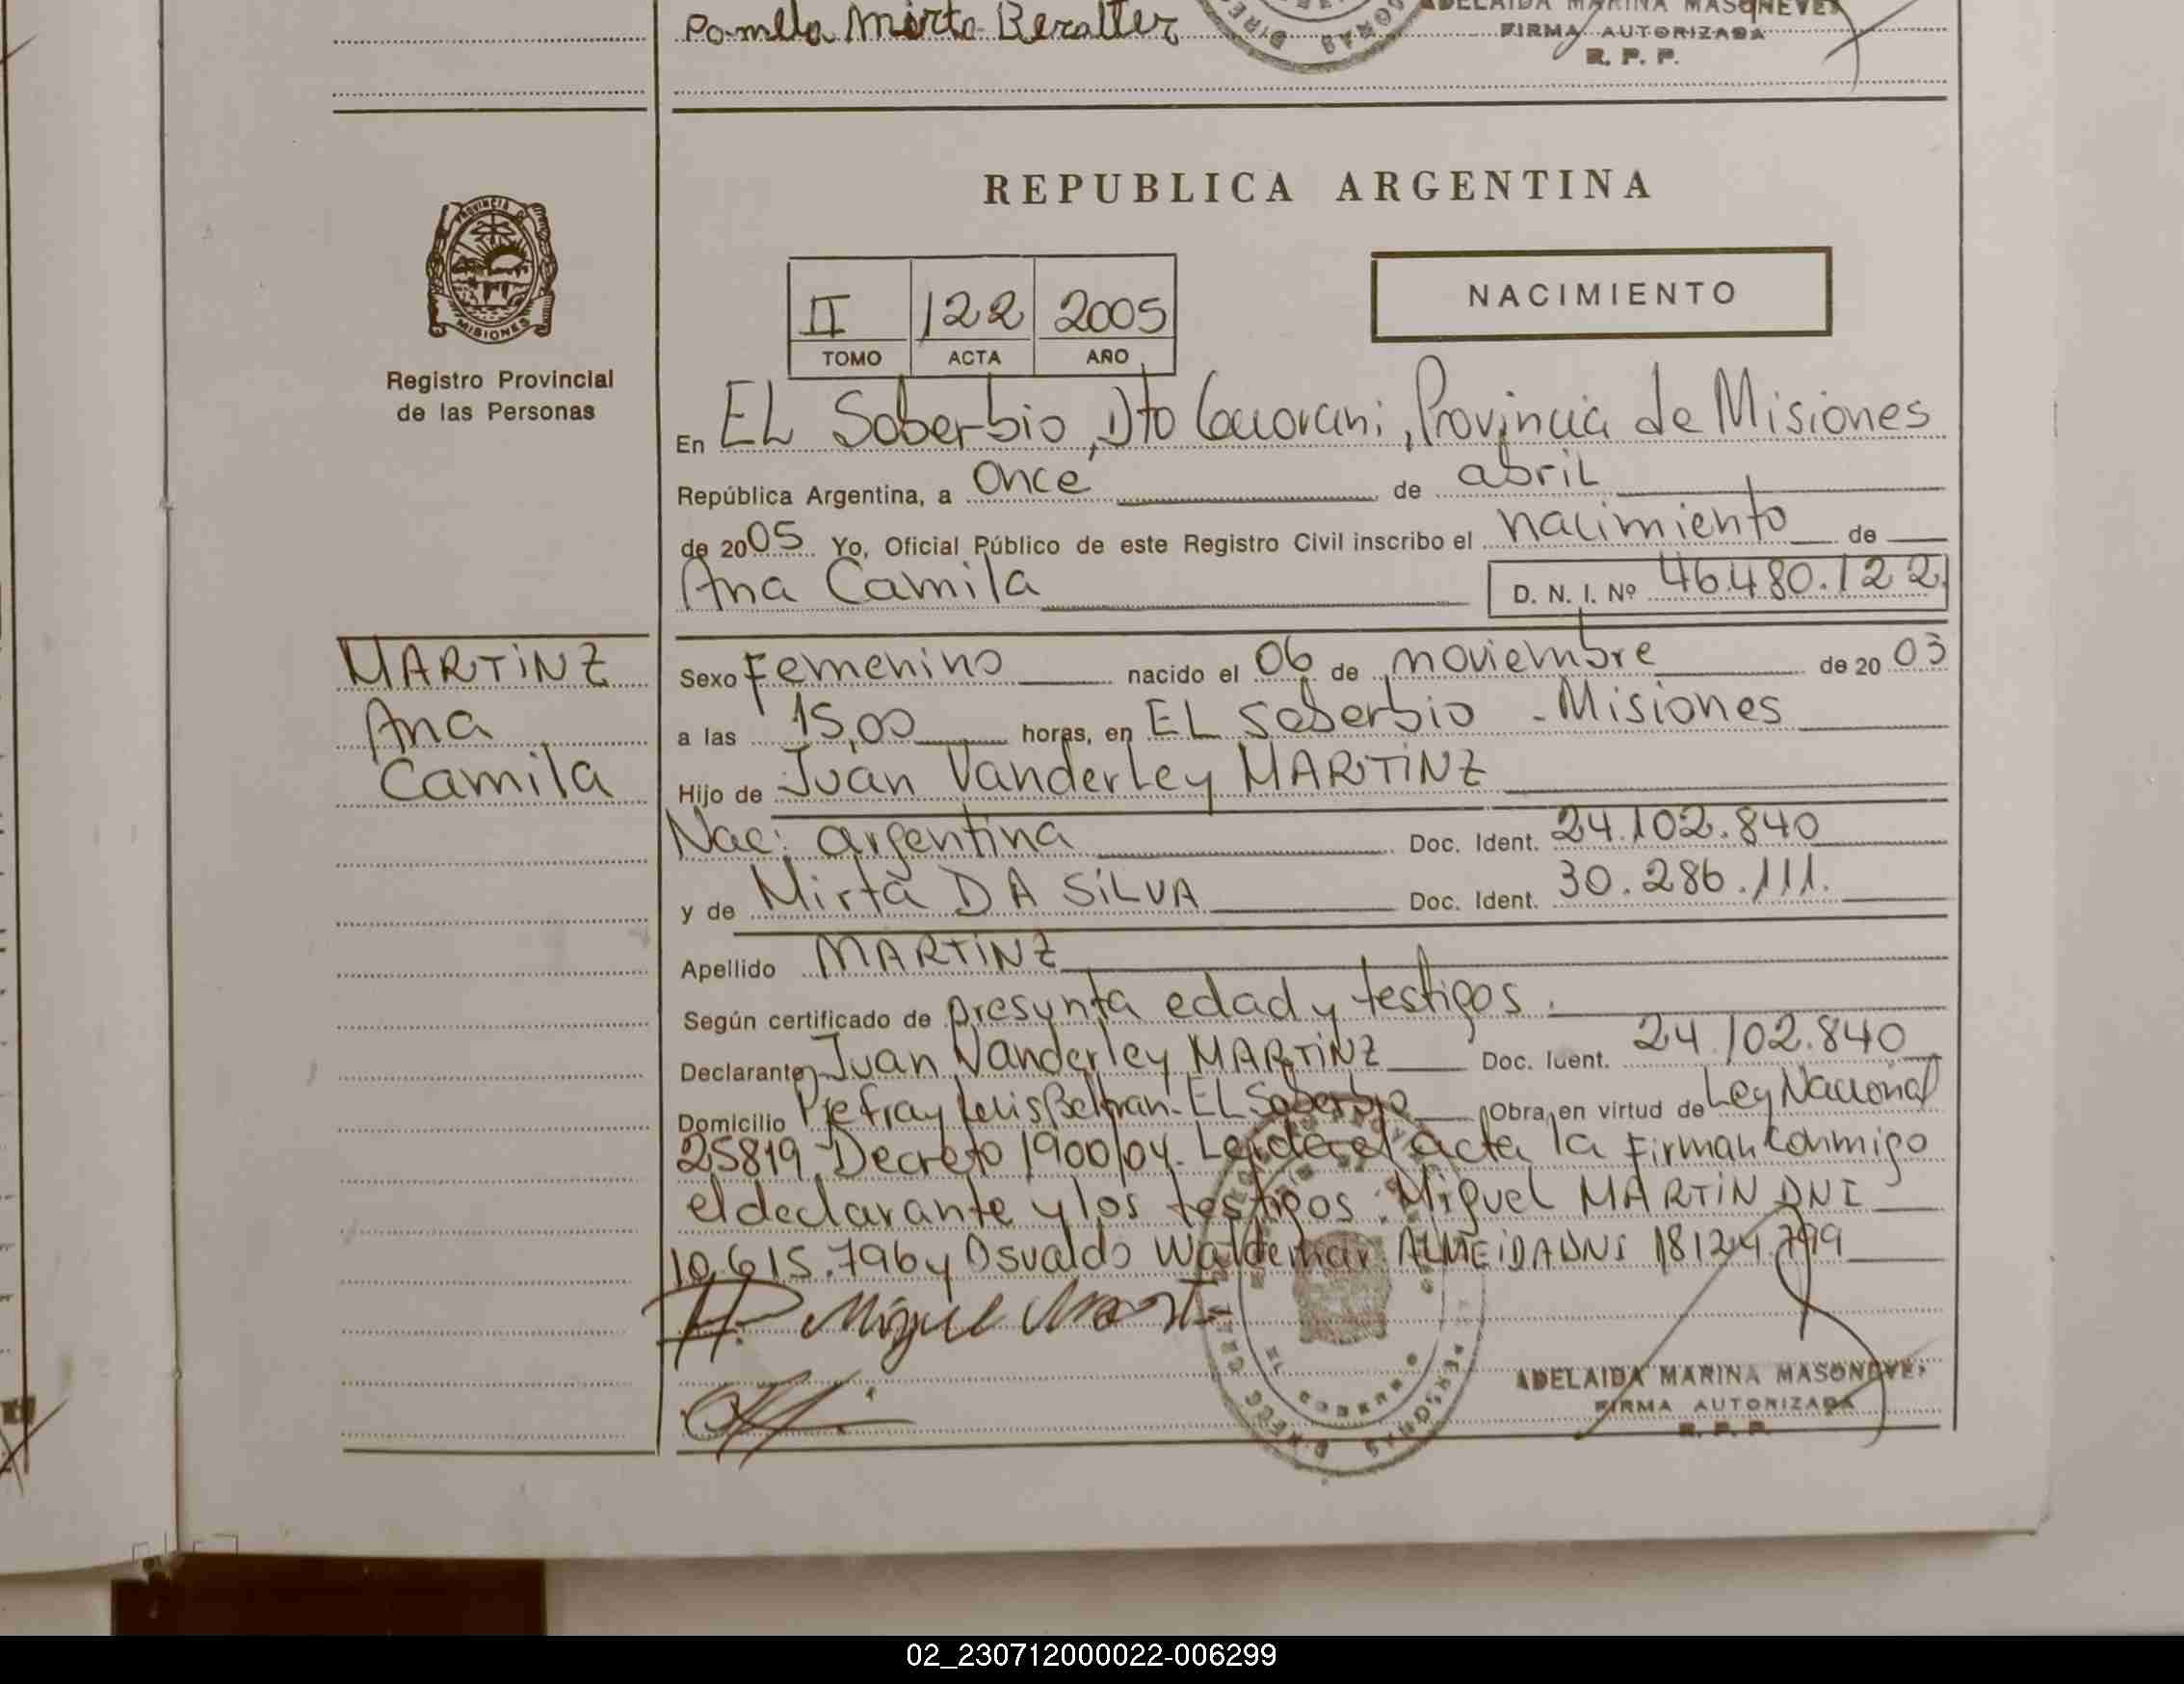 Pamela Mirta Beralter
ADELAIDA MARINA MASONEVES
FIRMA AUTORIZADA
R. P. P.
REPUBLICA ARGENTINA
PROVINCIA DE
MISIONES
Registro Provincial
de las Personas
II 122 2005
TOMO ACTA AÑO
NACIMIENTO
En EL Soberbio, Dto Guarani, Provincia de Misiones
República Argentina, a Once de abril
de 2005 Yo, Oficial Público de este Registro Civil inscribo el nacimiento de
Ana Camila D. N. I. Nº 46.480.122
MARTiNZ
Ana
Camila
Sexo Femenino nacido el 06 de noviembre de 2003
a las 15,00 horas, en EL Soberbio - Misiones
Hijo de Juan Vanderley MARTiNZ
Nac: argentina Doc. Ident. 24.102.840
y de Mirta DA SiLVA Doc. Ident. 30.286.111.
Apellido MARTiNZ
Según certificado de presunta edad y testigos.
Declarante Juan Vanderley MARTiNZ Doc. Ident. 24.102.840
Domicilio Pje Fray Luis Beltran - EL Soberbio Obra, en virtud de Ley Nacional
25819. Decreto 1900/04. Leida el acta la Firman conmigo
el declarante y los testigos: Miguel MARTiN DNI
10.615.796 y Osvaldo Waldemar ALMEiDA DNI 18.124.799
Miguel
ADELAIDA MARINA MASONEVES
FIRMA AUTORIZADA
R. P. P.
02_230712000022-006299